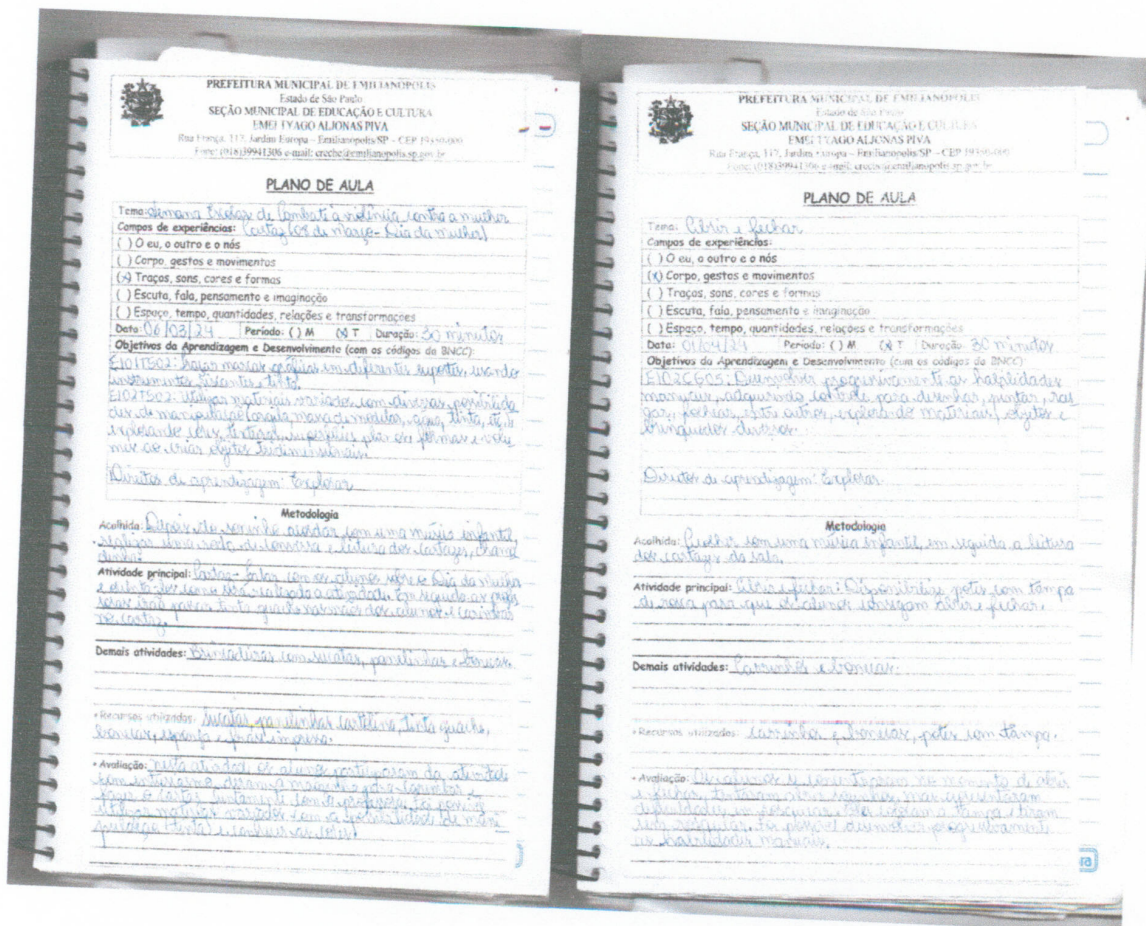 PREFEITURA MUNICIPAL DE EMILIANÓPOLIS
Estado de São Paulo
SEÇÃO MUNICIPAL DE EDUCAÇÃO E CULTURA
EMEI TYAGO ALJONAS PIVA
Rua França, 117, Jardim Europa – Emilianopolis/SP – CEP 19350-000
Fone: (018)39941306 e-mail: creche@emilianopolis.sp.gov.br
PLANO DE AULA
Tema: Semana Escolar de Combate à violência contra a mulher
Campos de experiências: Cartaz (08 de março - Dia da mulher)
( ) O eu, o outro e o nós
( ) Corpo, gestos e movimentos
(x) Traços, sons, cores e formas
( ) Escuta, fala, pensamento e imaginação
( ) Espaço, tempo, quantidades, relações e transformações
Data: 06/03/24 Período: ( ) M (x) T Duração: 30 minutos
Objetivos da Aprendizagem e Desenvolvimento (com os códigos da BNCC):
EI01TS02: marcas gráficas em diferentes suportes, usando
instrumentos riscantes e tinta.
EI02TS02: Utilizar materiais variados com diversas possibilida
des de manipulação (argila, massa de modelar, água, tinta, etc),
explorando cores, texturas, superfícies, planos, formas e volu
mes ao criar objetos tridimensionais.
Direitos de aprendizagem: Explorar
Metodologia
Acolhida: Depois do soninho acordar com uma música infantil,
realizar roda de conversa e leitura dos cartazes, chama
dinha.
Atividade principal: Cartaz - falar com os alunos sobre o Dia da mulher
e como será realizado a atividade. Em seguida as profes
soras irão passar tinta guache nas mãos dos alunos e carimbar
no cartaz.
Demais atividades: Brincadeiras com sucatas, panelinhas e bonecas.
• Recursos utilizados: sucatas, panelinhas, cartolina, tinta guache,
bonecas, esponja e frase impressa.
• Avaliação: Nesta atividade os alunos participaram da atividade
com entusiasmo, deram a mãozinha para carimbar e
o cartaz juntamente com a professora. Foi possível
utilizar materiais variados com a possibilidade de mani
pulação (tinta) e conhecer as cores.
PREFEITURA MUNICIPAL DE EMILIANOPOLIS
Estado de São Paulo
SEÇÃO MUNICIPAL DE EDUCAÇÃO E CULTURA
EMEI TYAGO ALJONAS PIVA
Rua França, 117, Jardim Europa – Emilianopolis/SP – CEP 19350-000
Fone: (018)39941306 e-mail: creche@emilianopolis.sp.gov.br
PLANO DE AULA
Tema: Abrir e fechar
Campos de experiências:
( ) O eu, o outro e o nós
(x) Corpo, gestos e movimentos
( ) Traços, sons, cores e formas
( ) Escuta, fala, pensamento e imaginação
( ) Espaço, tempo, quantidades, relações e transformações
Data: 01/04/24 Período: ( ) M (x) T Duração: 30 minutos
Objetivos da Aprendizagem e Desenvolvimento (com os códigos da BNCC):
EI02CG05: Desenvolver progressivamente as habilidades
manuais, adquirindo controle para desenhar, pintar, ras
gar, folhear, entre outros, explorando materiais, objetos e
brinquedos diversos.
Direitos de aprendizagem: Explorar
Metodologia
Acolhida: Acolher com uma música infantil, em seguida a leitura
dos cartazes da sala.
Atividade principal: Abrir e fechar: Disponibilizar potes com tampa
de rosca para que os alunos consigam abrir e fechar.
Demais atividades: Carrinhos e bonecas.
• Recursos utilizados: carrinhos e bonecas, potes com tampa.
• Avaliação: Os alunos se concentraram no momento de abrir
e fechar, tentaram abrir sozinhos, mas apresentaram
dificuldades em rosquear. Eles a tampa e
sem rosquear. Foi possível desenvolver progressivamente
as habilidades manuais.